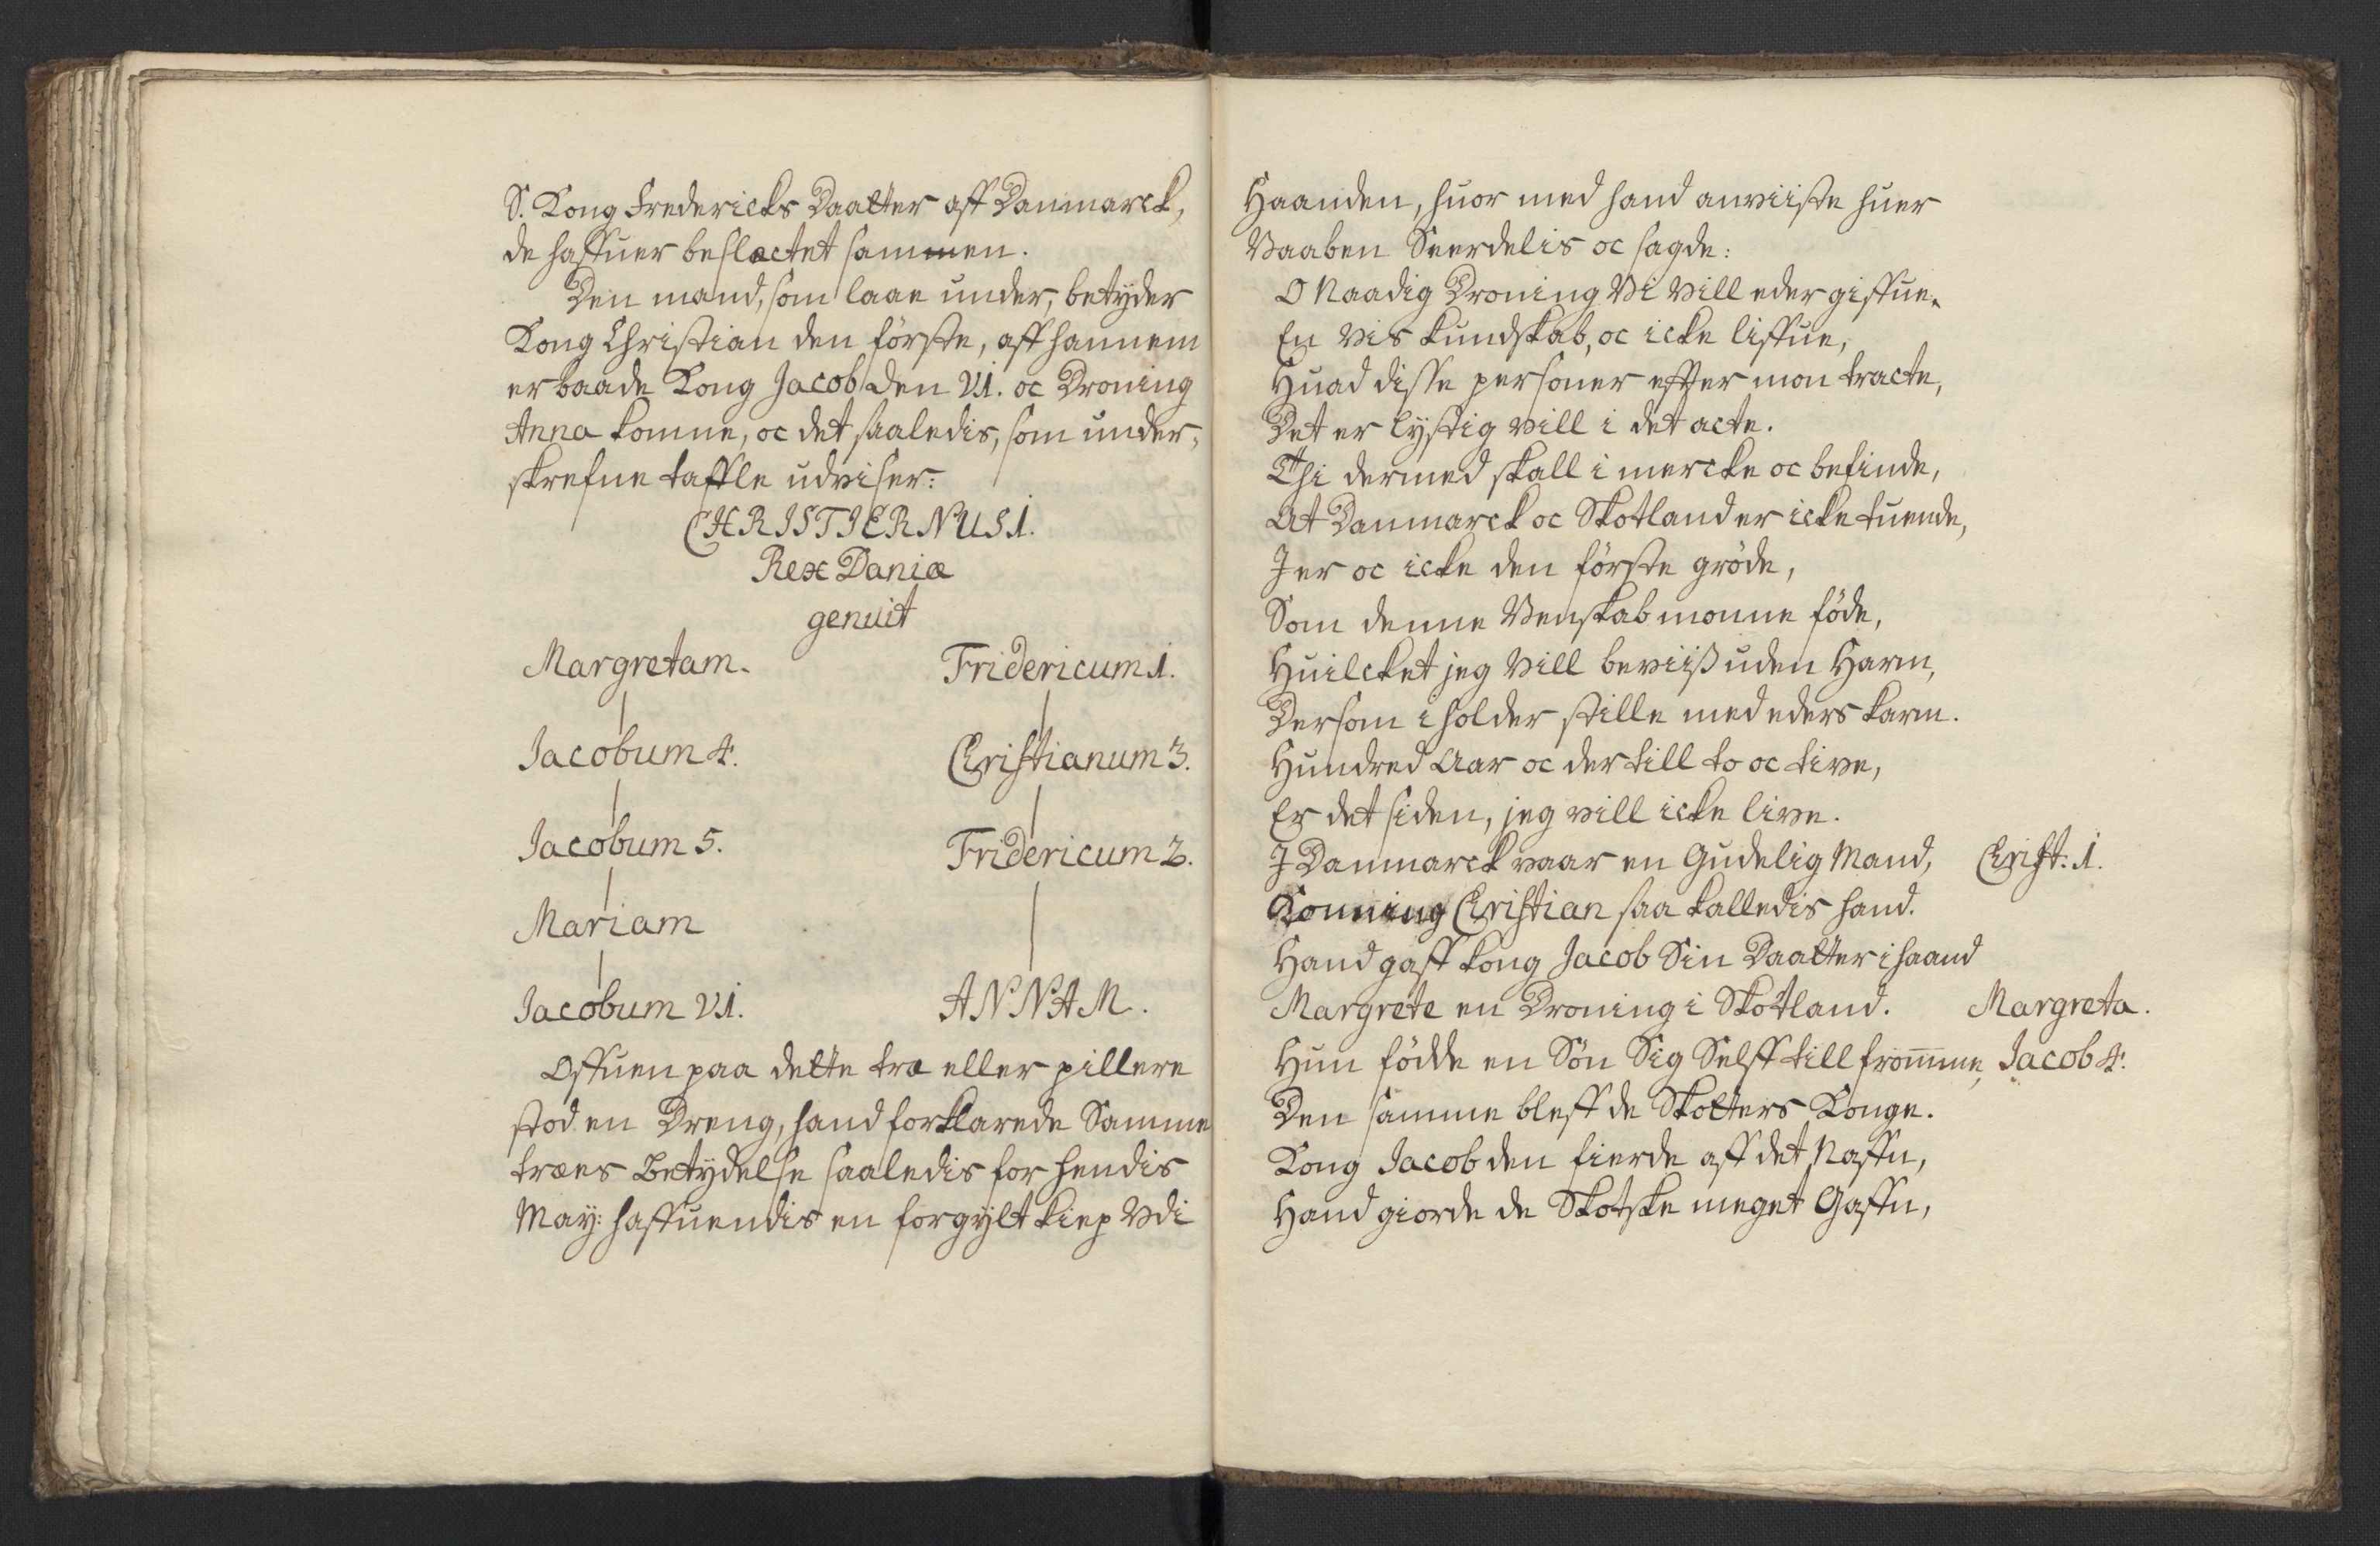 S. Kong Fredericks Daatter aff Danmarck,
de haffuer beslæctet sammen.
Den mand, som laae under, betyder
Kong Christian den förste, aff hannem
er baade Kong Jacob den VI. oc Droning
Anna komne, oc det saaledis, som under,
skrefne taffle udviser:
CHRISTIERNUS 1.
Rex Daniæ
genuit
Margretam. Fridericum 1.
Iacobum 4. Christianum 3.
Iacobum 5. Fridericum 2.
Mariam
Iacobum VI. ANNAM.
Offuen paa dette træ eller pillere
stod en Dreng, hand forklarede Samme
træes Betydelse saaledis for hendis
May: haffuendis en forgylt kiep Vdi
Haanden, huor med hand anviiste huer
Vaaben Seerdelis oc sagde:
O Naadig Droning Vi Vill eder giffue.
En Vis kundskab, oc icke liffue,
Huad disse personer effter mon tracte,
Det er lystig vill i det acte.
Thi dermed skall i mercke oc befinde,
At Danmarck oc Skotland er icke tuende,
J er oc icke den förste gröde,
Som denne Venskab monne föde,
Huilcket jeg Vill beviiß uden Harm,
Dersom i holder stille med eders karm.
Hundred Aar oc der till to oc tive,
Er det siden, jeg vill icke live.
J Danmarck vaar en Gudelig Mand, Christ: 1.
Konning Christian saa kalledis hand.
Hand gaff kong Jacob Sin Daatter i haand
Margrete en Droning i Skotland. Margreta.
Hun födde en Sön Sig Selff till fromme, Iacob 4.
Den samme bleff de Skotters Konge.
Kong Iacob den fierde aff det Naffn,
Hand giorde de Skotske meget Gaffn,